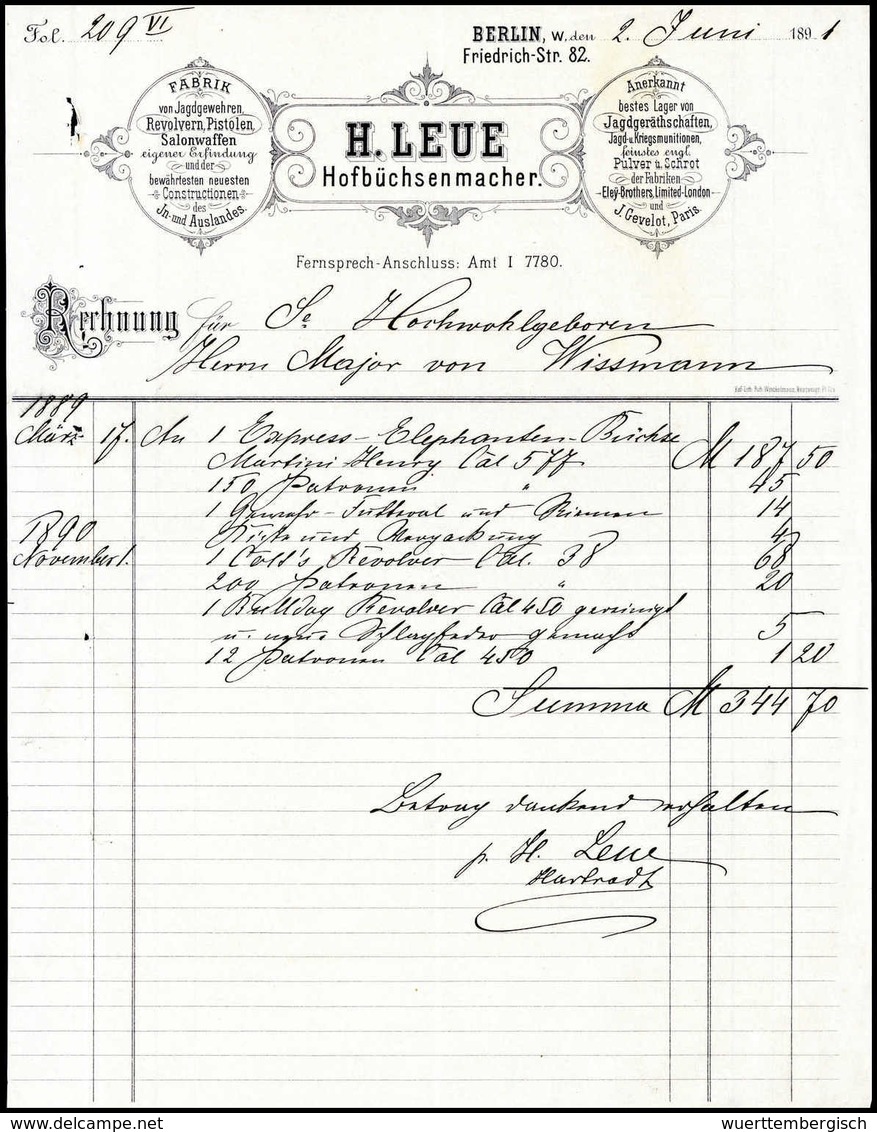 Fol. 209 VI
BERLIN, W. den 2. Juni 1891
Friedrich-Str. 82.
FABRIK
von Jagdgewehren,
Revolvern, Pistolen,
Salonwaffen
eigener Erfindung
und der
bewährtesten neuesten
Constructionen
des
Jn- und Auslandes.
H. LEUE
Hofbüchsenmacher.
Anerkannt
bestes Lager von
Jagdgeräthschaften,
Jagd- u. Kriegsmunitionen,
feinstes engl.
Pulver u. Schrot
der Fabriken
Eley-Brothers, Limited-London
und
J. Gevelot, Paris.
Fernsprech-Anschluss: Amt I 7780.
Rechnung für Se Hochwohlgeboren
Herrn Major von Wissmann
1889
März 17. An 1 Express-Elephanten-Büchse
Martini Henry Cal 577 M 187 50
150 Patronen " 45
1 Gewehr-Futteral und Riemen 14
1890 Kiste und Verpackung 4
November 1. 1 Colt's Revolver Cal. 38 68
200 Patronen " 20
1 Bulldog Revolver Cal 450 gereinigt
u. neue Schlagfeder gemacht 5
12 Patronen Cal 450 1 20
Summa M 344 70
Betrag dankend erhalten
p. H. Leue
delcampe.net
wuerttembergisch